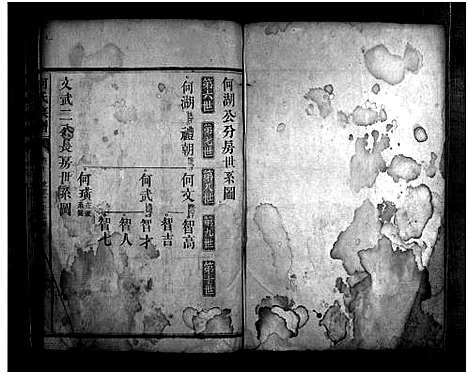 何湖公分房世系圖
第六世 第七世 第八世 第九世 第十世
何湖 禮朝 何文 智高
智吉
何武 智才
智人
何璜 智七
文武二公長房世系圖